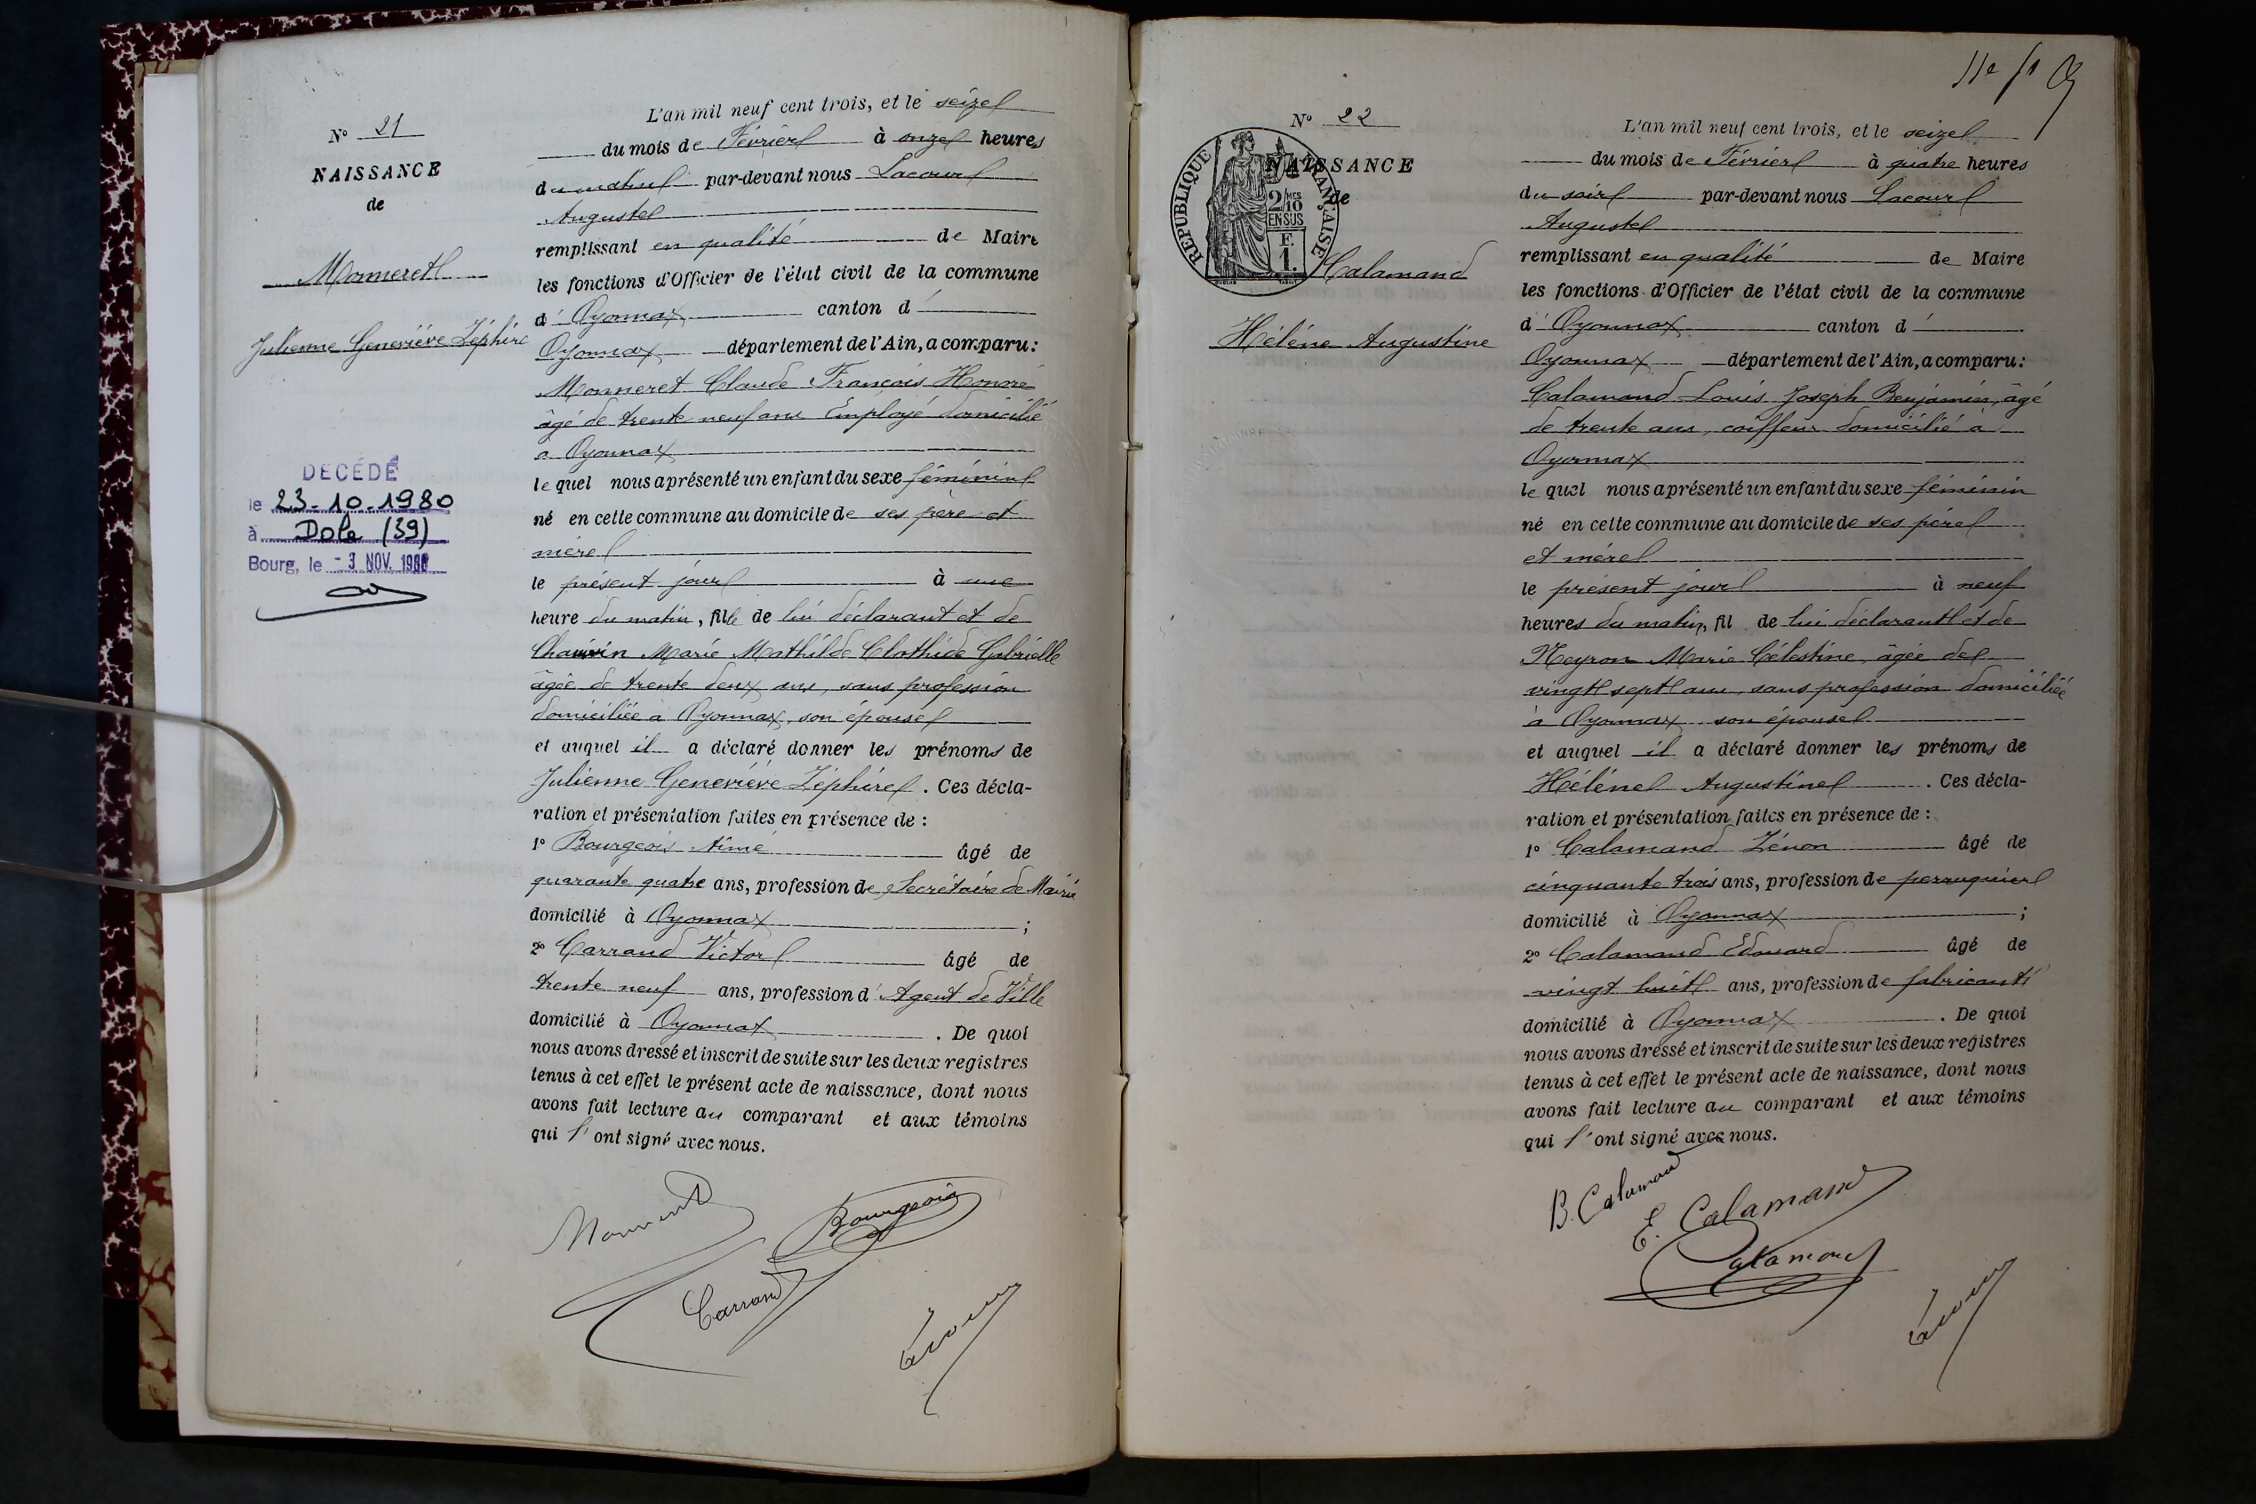 N° 21
NAISSANCE
de
Monneret
Julienne Geneviève Zéphire
DÉCÉDÉ
le 23-10-1980
à Dole (39)
Bourg, le - 3 NOV. 1980
L'an mil neuf cent trois, et le seize
du mois de Février à onze heures
du matin par-devant nous Lacour
Auguste
remplissant en qualité de Maire
les fonctions d'Officier de l'état civil de la commune
d' Oyonnax canton d'
Oyonnax département de l'Ain, a comparu :
Monneret Claude François Honoré
âgé de trente neuf ans Employé domicilié
a Oyonnax
le quel nous a présenté un enfant du sexe féminin
né en cette commune au domicile de ses père et
mère
le présent jour à une
heure du matin, fille de lui déclarant et de
Chauvin Marie Mathilde Clothide Gabrielle
âgée de trente deux ans, sans profession
domiciliée a Oyonnax, son épouse
et auquel il a déclaré donner les prénoms de
Julienne Geneviève Zéphire. Ces décla-
ration et présentation faites en présence de :
1° Bourgeois Aimé âgé de
quarante quatre ans, profession de Secrétaire de Mairie
domicilié à Oyonnax ;
2° Carraud Victor âgé de
trente neuf ans, profession d' Agent de Ville
domicilié à Oyonnax. De quoi
nous avons dressé et inscrit de suite sur les deux registres
tenus à cet effet le présent acte de naissance, dont nous
avons fait lecture au comparant et aux témoins
qui l'ont signé avec nous.
Monneret
Bourgeois
Carraud
Lacour
11e f1
N° 22
NAISSANCE
de
REPUBLIQUE FRANÇAISE
2/10 MES
EN SUS
F.
1.
Calamand
Hélène Augustine
L'an mil neuf cent trois, et le seize
du mois de Février à quatre heures
du soir par-devant nous Lacour
Auguste
remplissant en qualité de Maire
les fonctions d'Officier de l'état civil de la commune
d' Oyonnax canton d'
Oyonnax département de l'Ain, a comparu :
Calamand Louis Joseph Benjamin, âgé
de trente ans, coiffeur domicilié à
Oyonnax
le quel nous a présenté un enfant du sexe féminin
né en cette commune au domicile de ses père
et mère
le présent jour à neuf
heures du matin, fil de lui déclarant et de
Neyron Marie Célestine, âgée de
vingt sept ans, sans profession domiciliée
à Oyonnax son épouse
et auquel il a déclaré donner les prénoms de
Hélène Augustine. Ces décla-
ration et présentation faites en présence de :
1° Calamand Zénon âgé de
cinquante trois ans, profession de perruquier
domicilié à Oyonnax ;
2° Calamand Edouard âgé de
vingt huit ans, profession de fabricant
domicilié à Oyonnax. De quoi
nous avons dressé et inscrit de suite sur les deux registres
tenus à cet effet le présent acte de naissance, dont nous
avons fait lecture au comparant et aux témoins
qui l'ont signé avec nous.
B. Calamand
E. Calamand
Calamand
Lacour